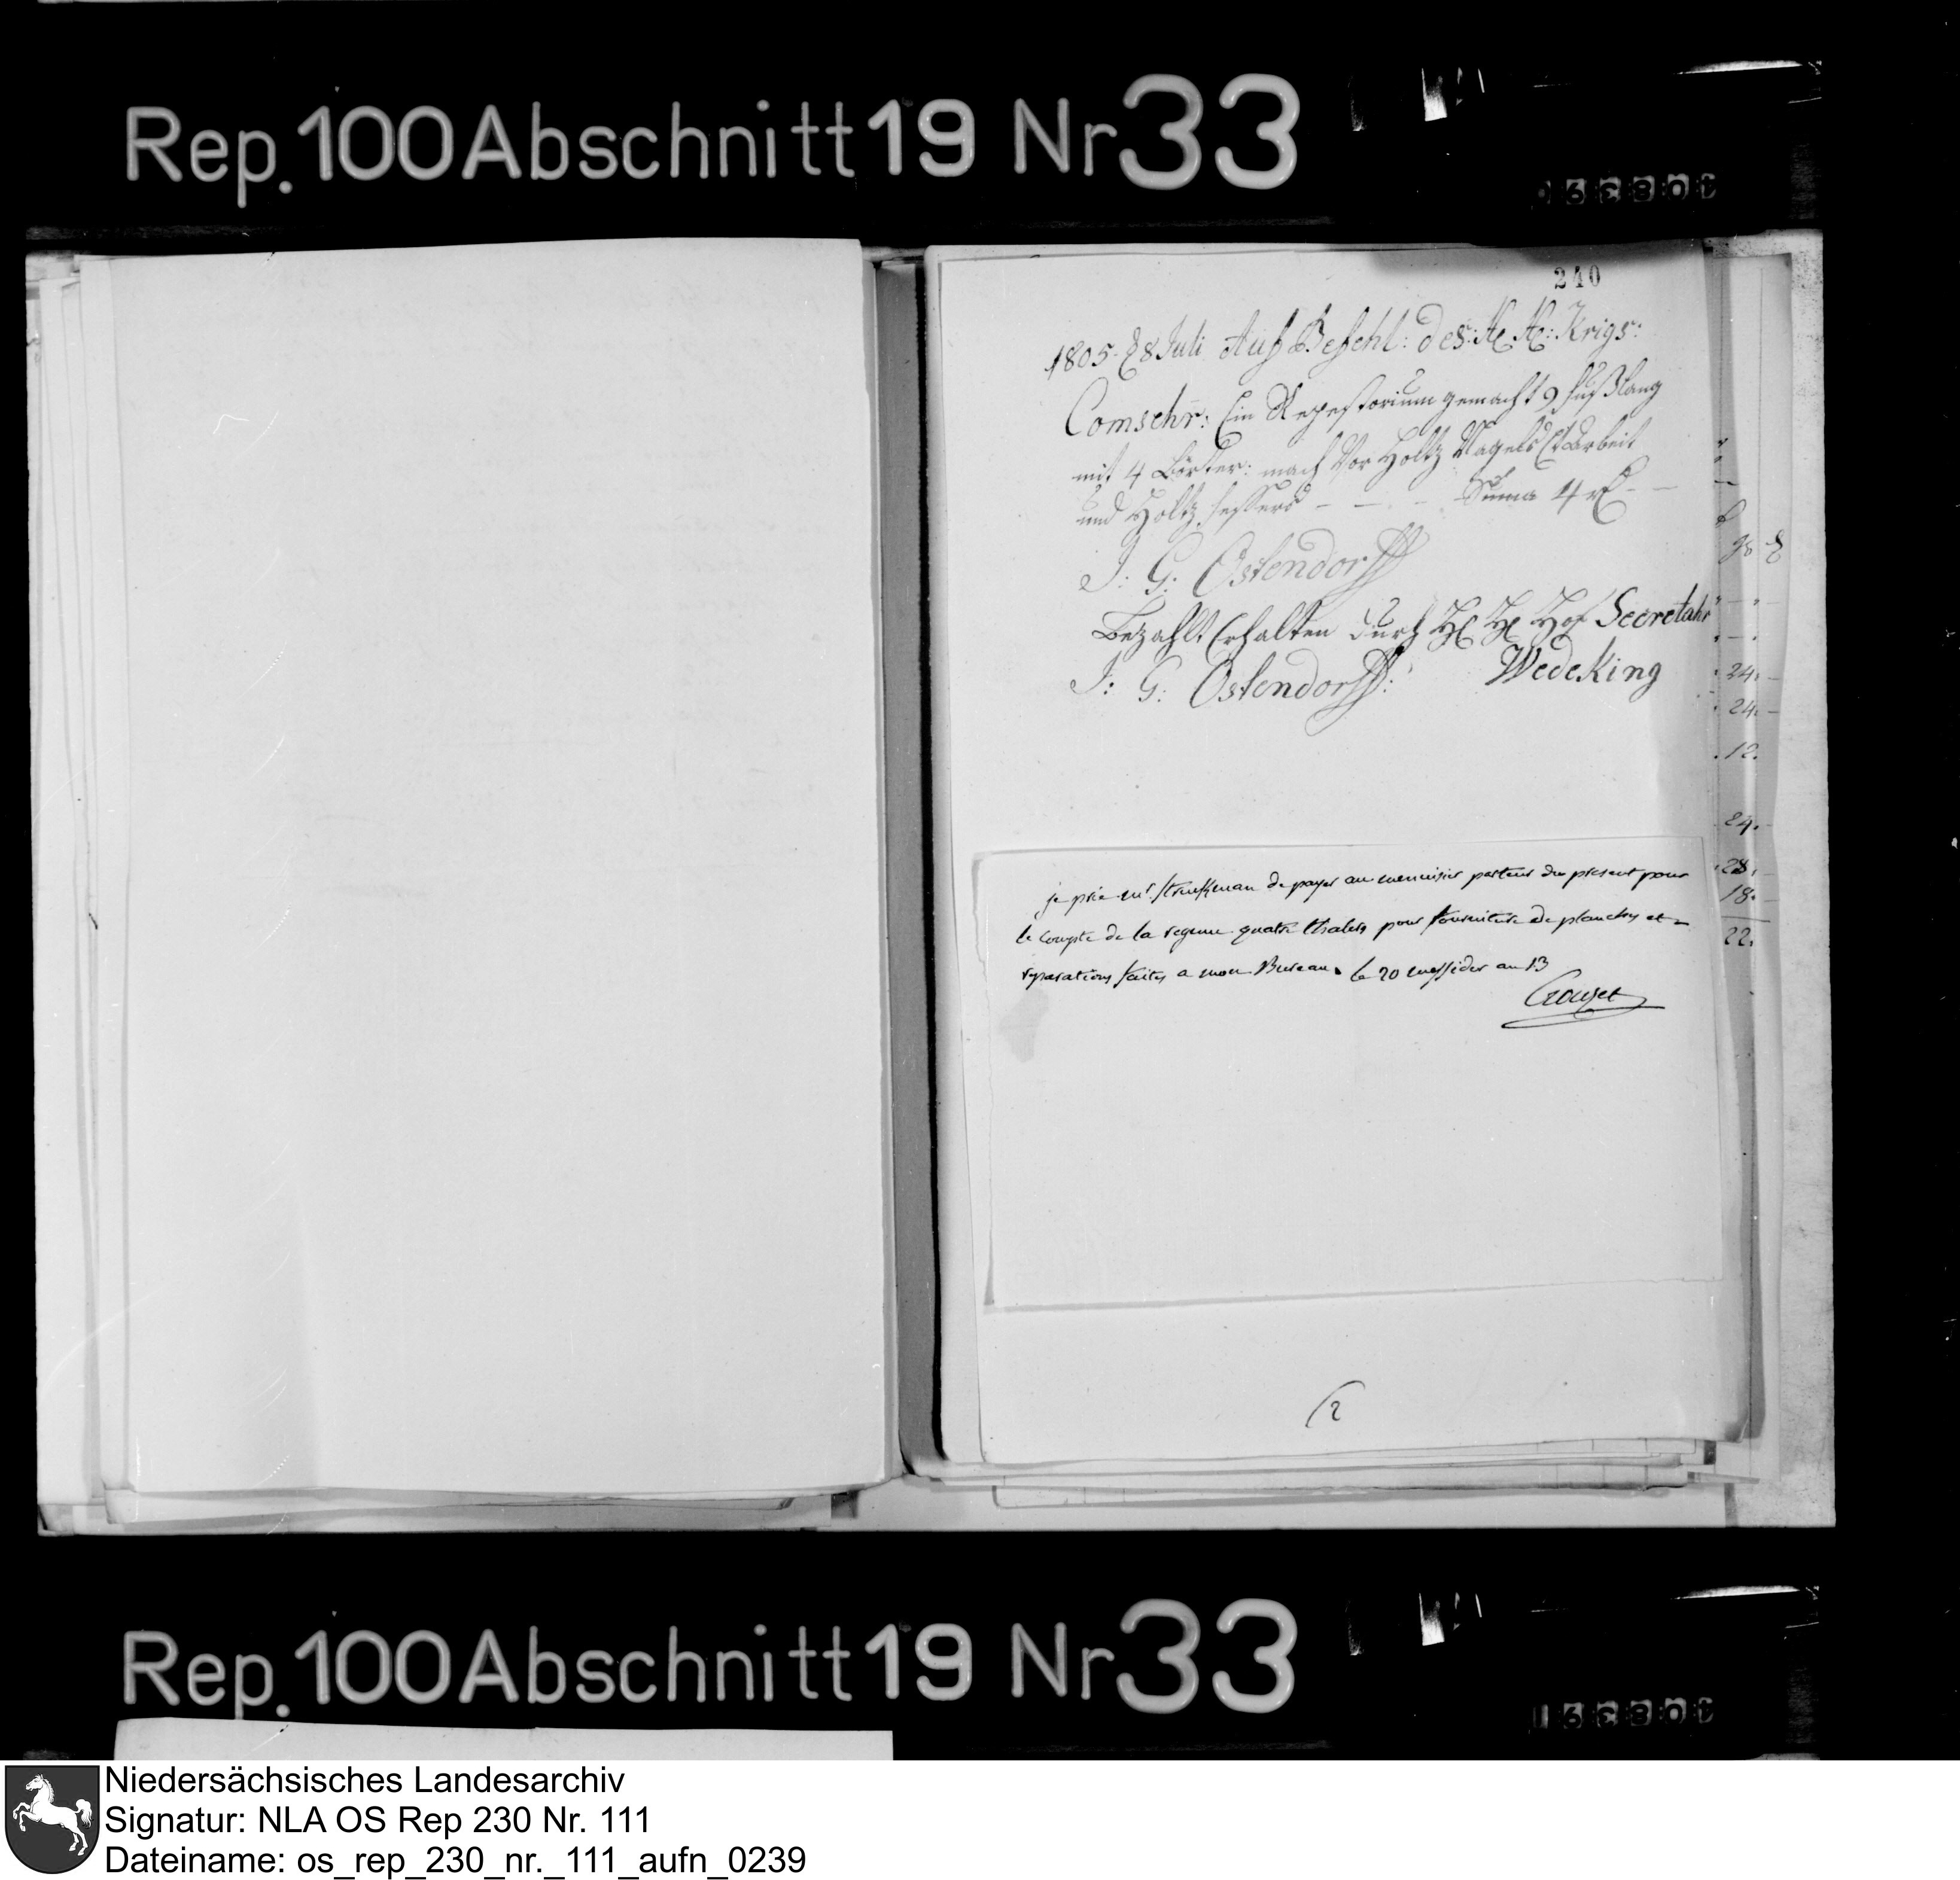 Rep.100 Abschnitt 19 Nr 33
240
1805. d 8 Juli Auf Befehl: des: H H: Krigs:
Comsehr: Ein Repestorium gemacht 9 fuß lang
mit 4 Börter: mach vor Holtz Nagels Arbeit
und Holtz Suma 4
J: G: Ostendorff
Bezahlt Erhalten durch H H Hof Secretahr
J: G: Ostendorff: Wedeking
je prie mr. struckman de payer au menuisier porteur du présent pour
le compte de la regence quatre thalers pour fourniture de planches et
reparations faites a mon Bureau. le 20 messidor an 13
Crouzet
2
24.
24.
12.
24.
28.
18.
22.
Rep.100 Abschnitt 19 Nr 33
Niedersächsisches Landesarchiv
Signatur: NLA OS Rep 230 Nr. 111
Dateiname: os_rep_230_nr._111_aufn_0239